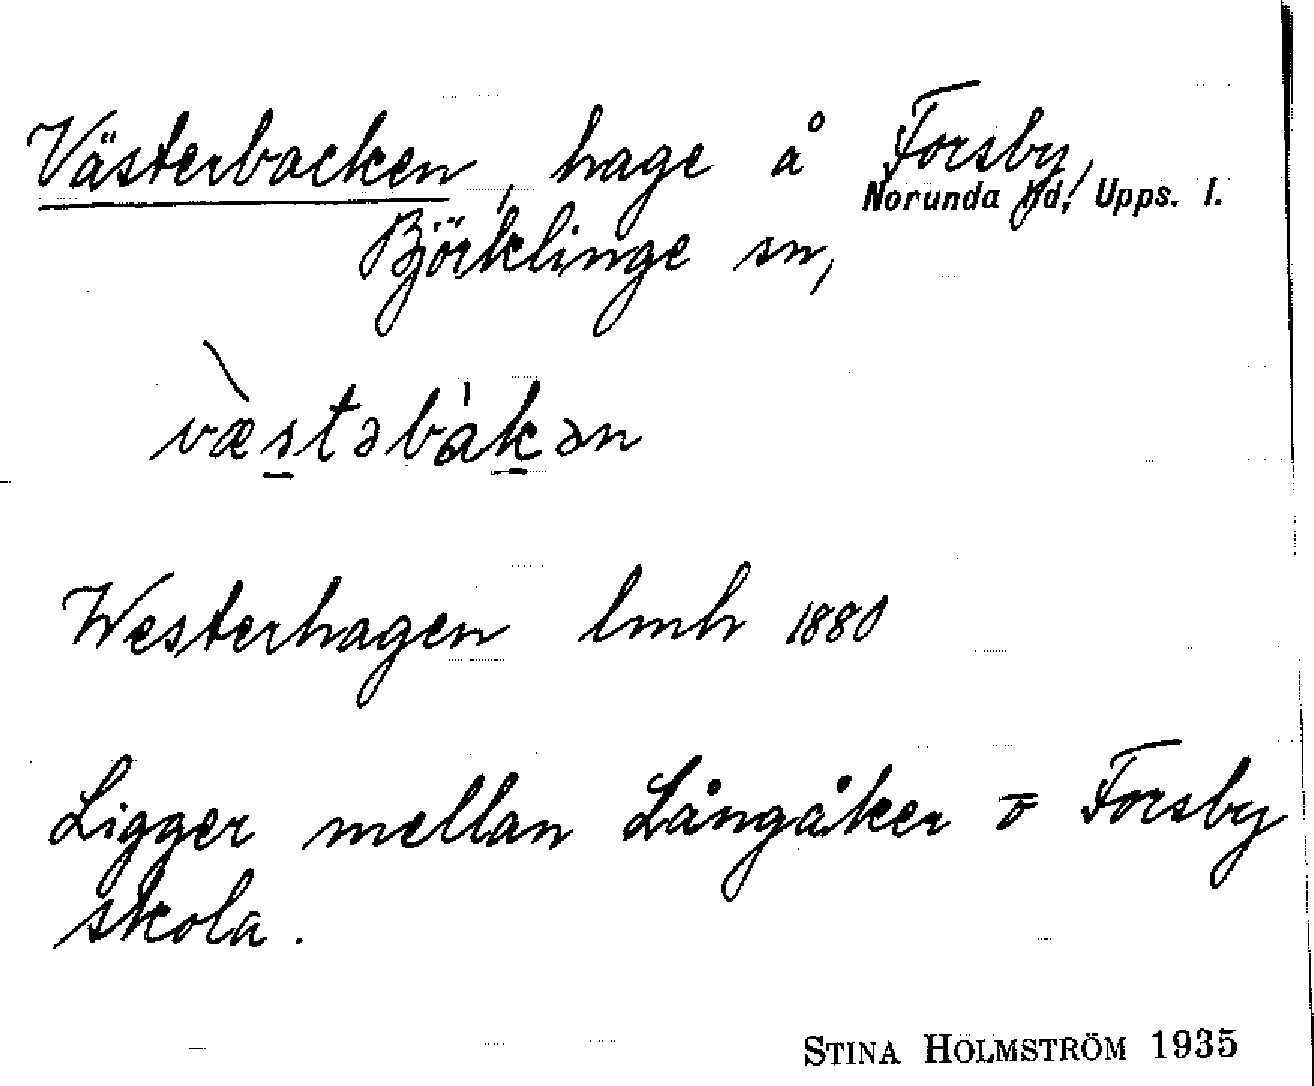 Västerbacken, hage å Forsby,
Norunda hd, Upps. l.
Björklinge sn,
væstəbakən
Westerhagen lmh 1880
Ligger mellan Långåker o Forsby
skola.
STINA HOLMSTRÖM 1935